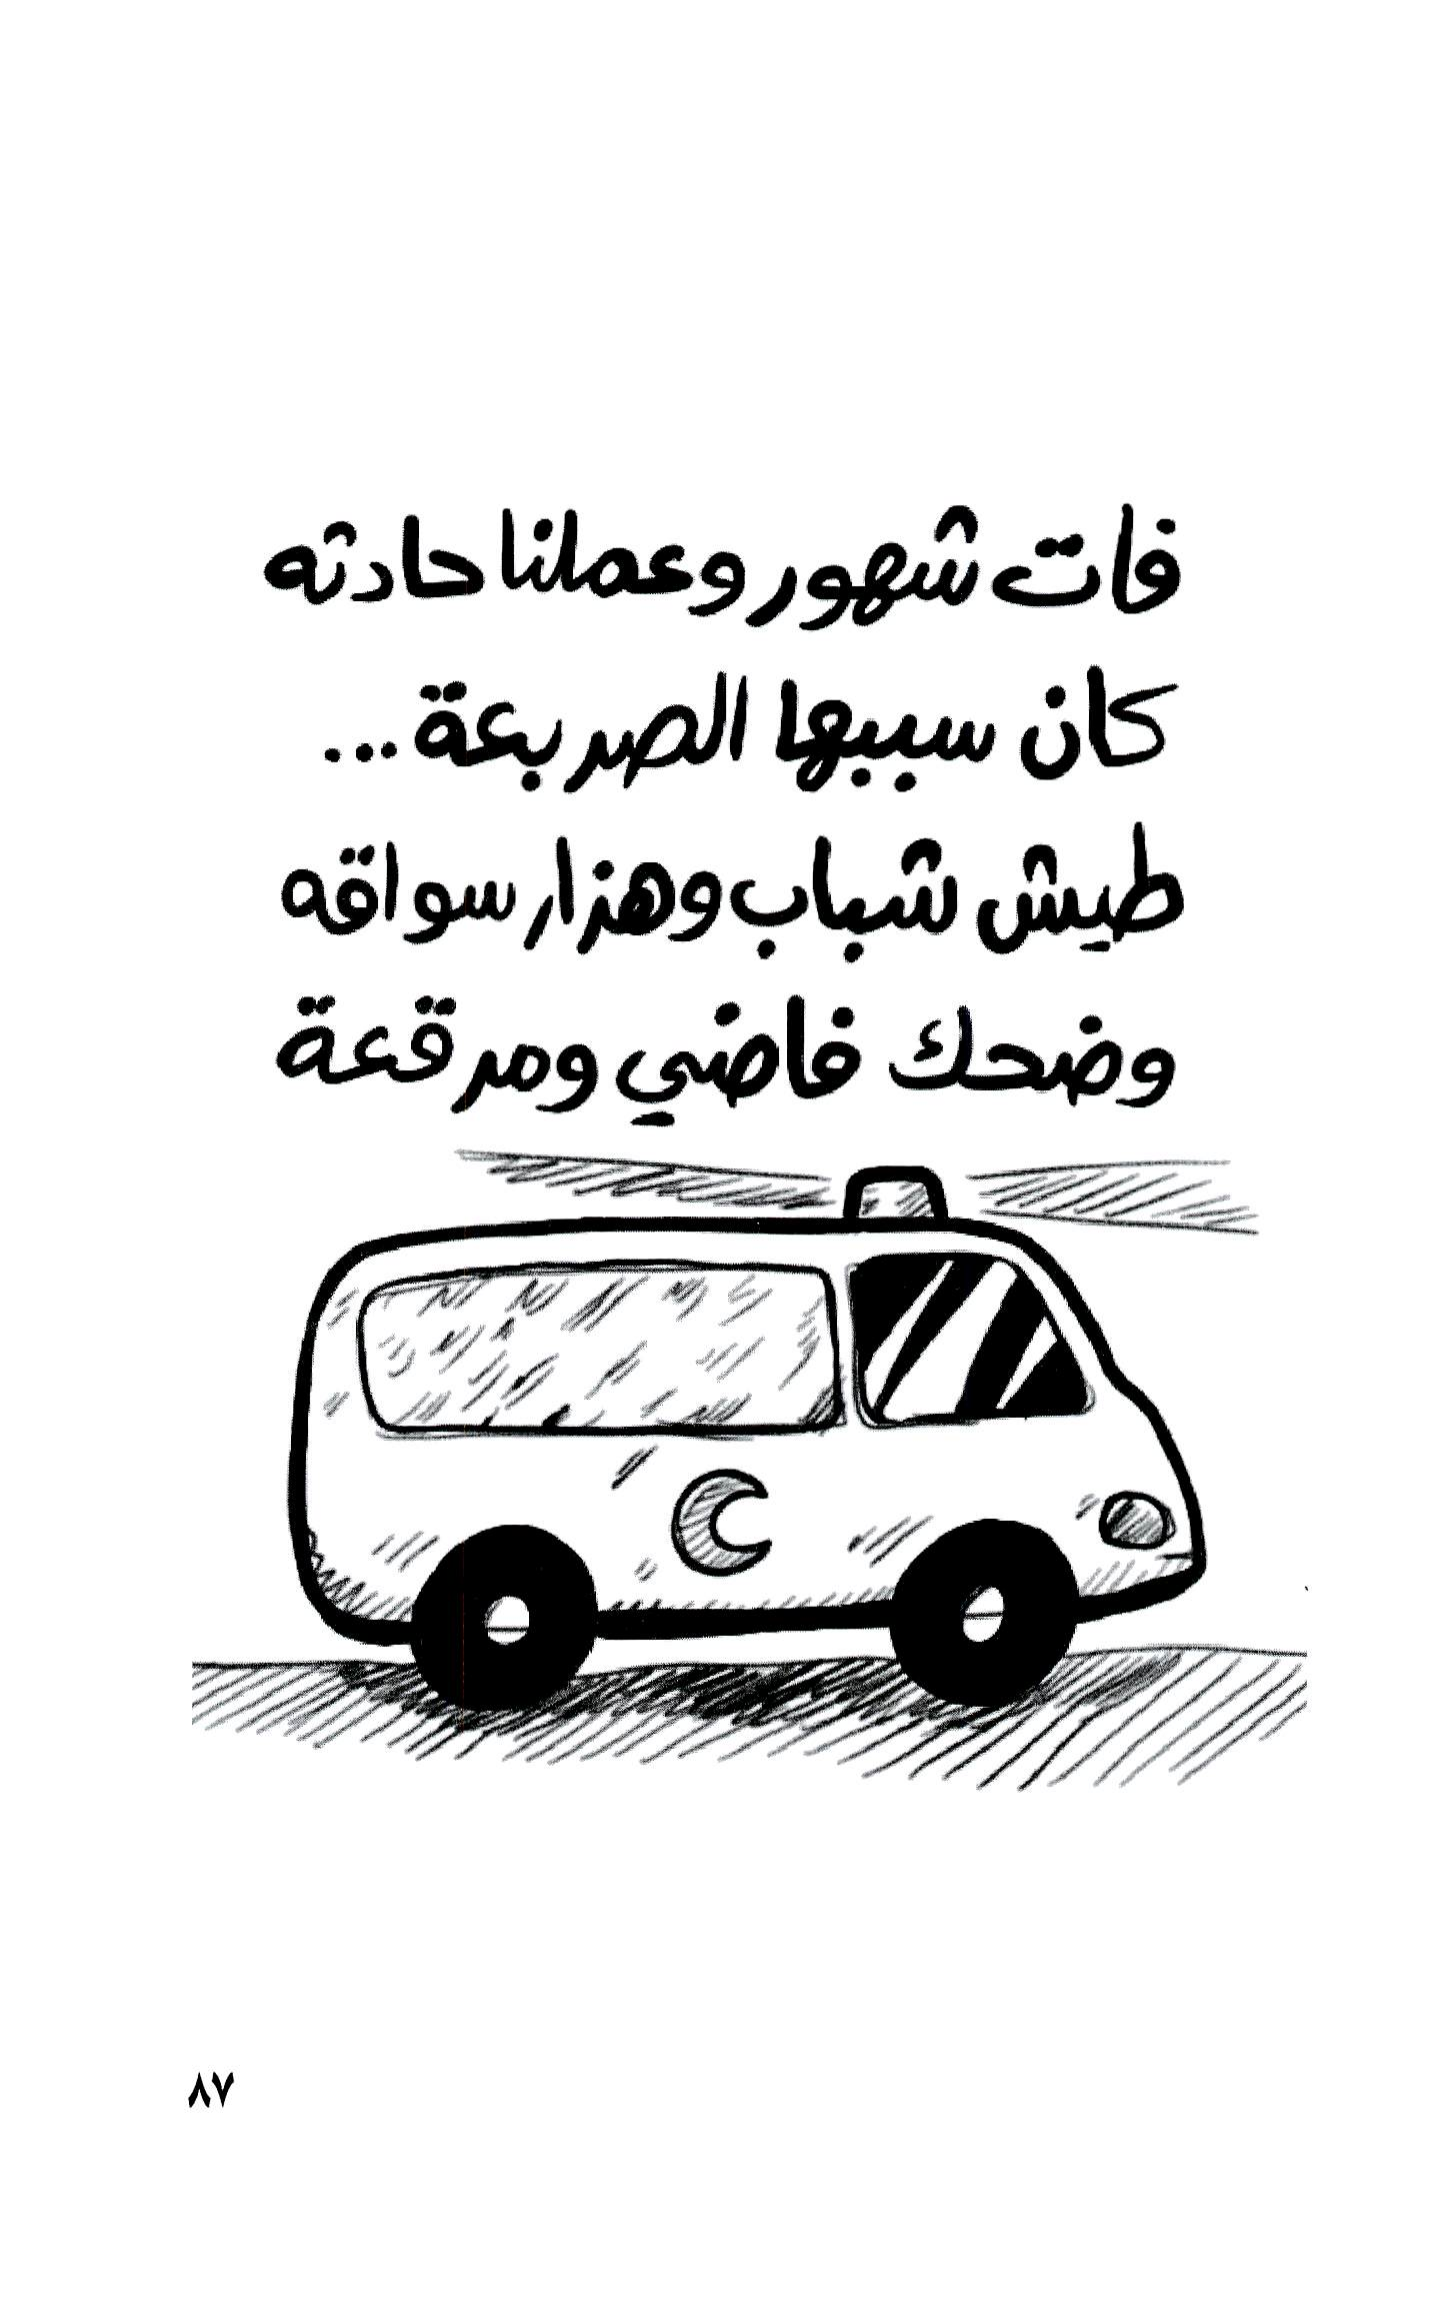 فات شهور وعملنا حادثه
كان سببها الصربعة...
طيش شباب وهزار سواقه
وضحك فاضي ومرقعة
٨٧